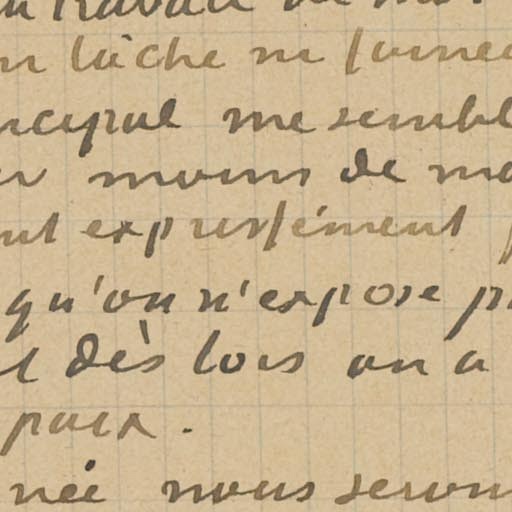 travail de mo
lâche ni journée
ncipal me sembl
moins de mo
nt expressément p
qu'on n'expose p
dès lors on a
paix.
née nous seron